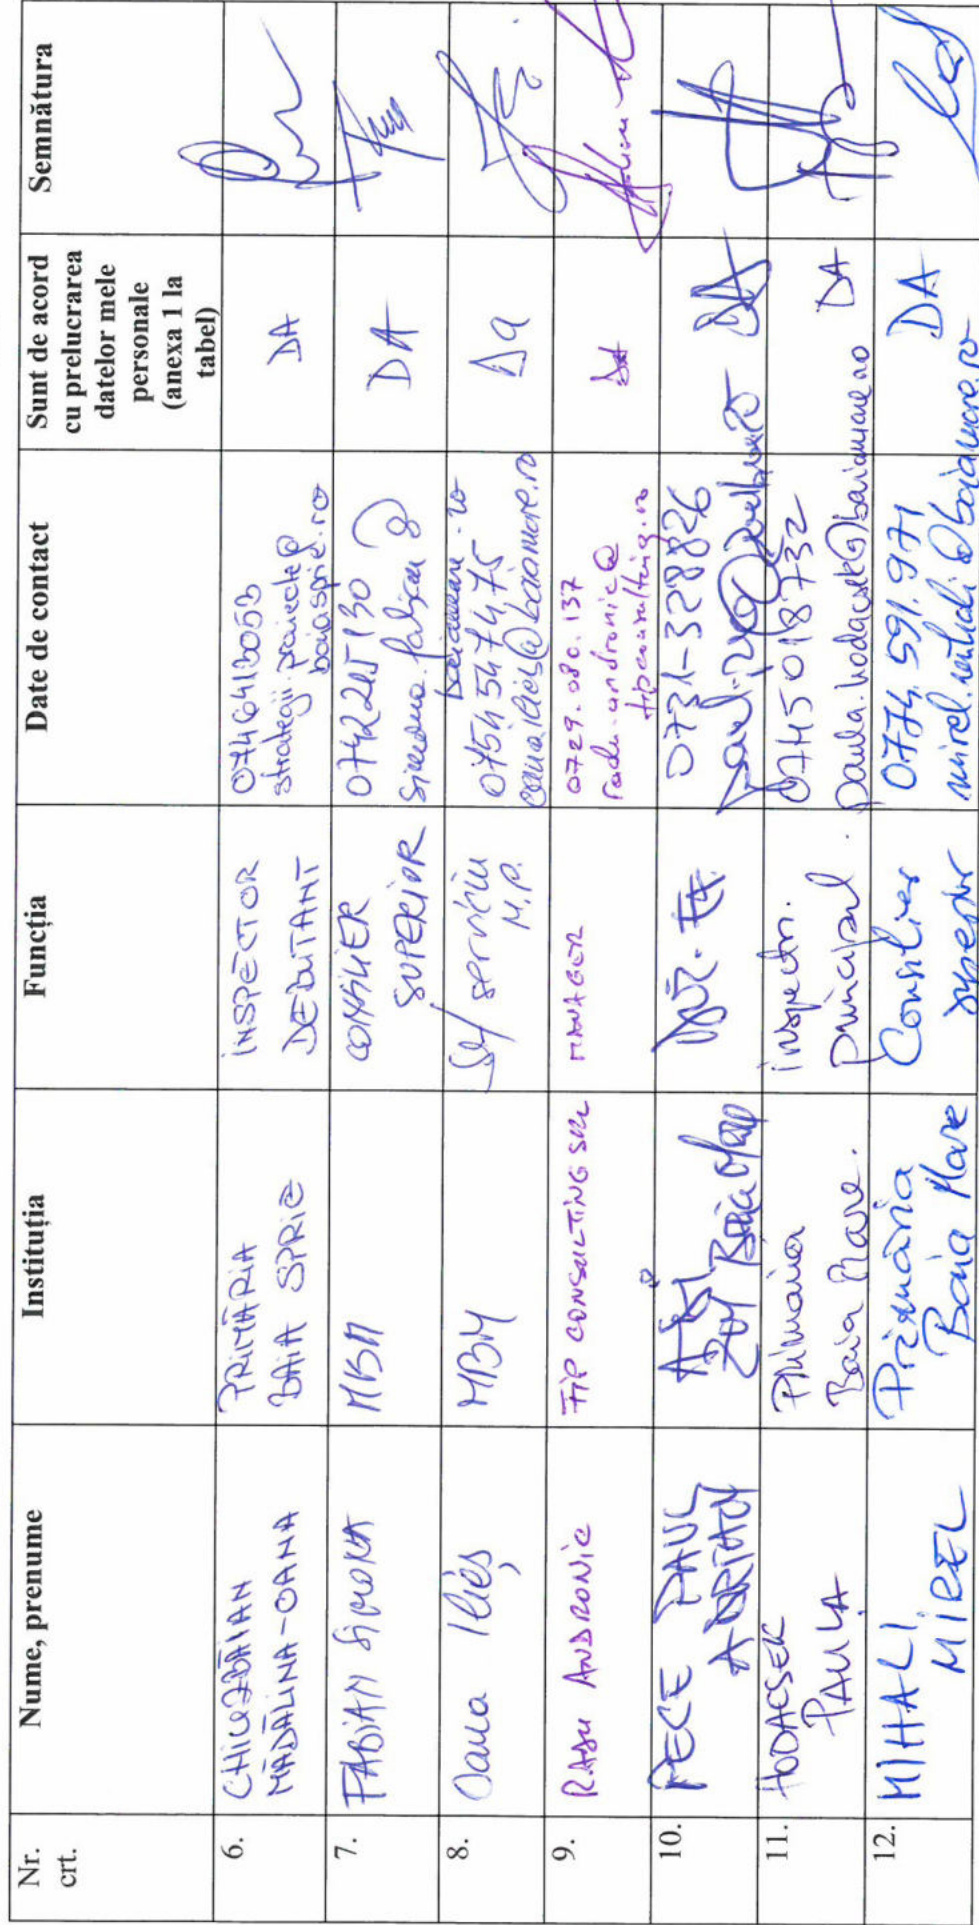 Nr.
crt.
Nume, prenume
Instituția
Funcția
Date de contact
Sunt de acord
cu prelucrarea
datelor mele
personale
(anexa 1 la
tabel)
Semnătura
6.
CHIUZBĂIAN
MĂDĂLINA-OANA
PRIMĂRIA
BAIA SPRIE
INSPECTOR
DEBUTANT
strategii.proiecte@
baiasprie.ro
DA
7.
FABIAN Simona
MBM
CONSILIER
SUPERIOR
0742215130
simona.fabian@
baiamare.ro
DA
8.
Oana Ilieș
MBM
Șef serviciu
M.P.
0754547475
oana.ilies@baiamare.ro
Da
9.
RADU ANDRONIC
FIP CONSULTING SRL
MANAGER
0729.080.137
radu.andronic@
fipconsulting.ro
DA
10.
PECE PAUL
Baia Mare
0731-328826
DA
11.
HODACSEK
PAULA
Primăria
Baia Mare.
inspector
principal.
0745018732
paula.hodacsek@baiamare.ro
DA
12.
MIHALI
MIREL
Primăria
Baia Mare
Consilier
superior
0774.591.971
mirel.mihali@baiamare.ro
DA